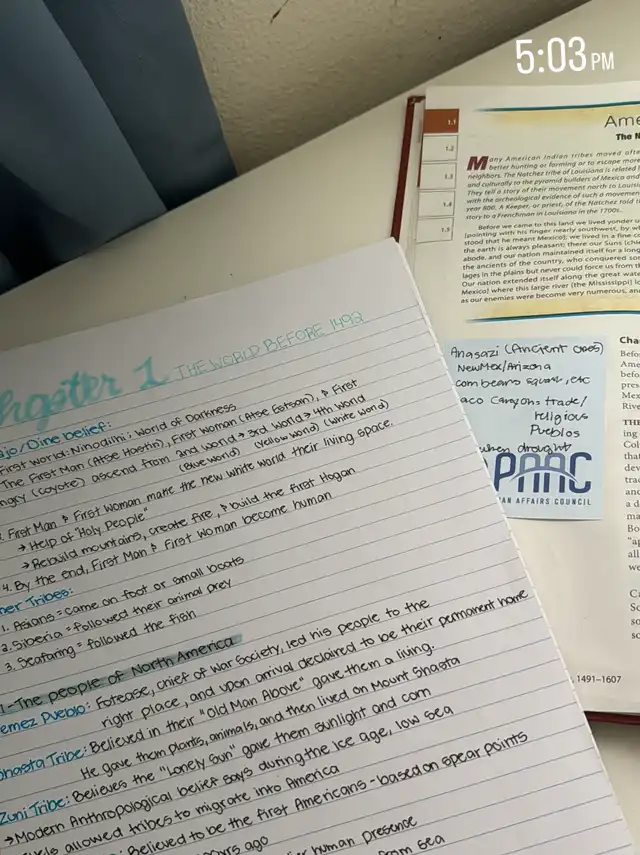 5:03 PM
1.1
1.2
1.3
1.4
1.5
Ame
The N
Many American Indian tribes moved afte
better hunting or farming or to escape more
neighbors. The Natchez tribe of Louisiana is related
and culturally to the pyramid builders of Mexico and
They tell a story of their movement north to Louisi
with the archeological evidence of such a movemen
year 800. A Keeper, or priest, of the Natchez told
story to a Frenchman in Louisiana in the 1700s.
Before we came to this land we lived yonder
[pointing with his finger nearly southwest, by wh
stood that he meant Mexico]; we lived in a fine c
the earth is always pleasant; there our Suns [chi
abode, and our nation maintained itself for a long
the ancients of the country, who conquered so
lages in the plains but never could force us from
Our nation extended itself along the great wate
Mexico] where this large river [the Mississippi] lo
as our enemies were become very numerous, an
Anasazi (Ancient ones)
New Mex/Arizona
corn beans squash, etc
aco Canyon: trade/
religious
Pueblos
when drought
PAAC
AN AFFAIRS COUNCIL
Cha
Befo
Ame
befo
pres
Mexi
Rive
THE
ing
Col
that
dev
tra
and
a d
ma
Bo
"ap
all
we
Ca
So
so
so
1491–1607
hapter 1 THE WORLD BEFORE 1492
ajo/Dine belief:
First World: Ninodilhil: World of Darkness
The First Man (Atse Hastin), First Woman (Atse Estsan), & First
ngry (coyote) ascend from 2nd world → 3rd World → 4th World
(Blue World) (Yellow World) (White World)
First Man & First Woman make the new white world their living space.
→ Help of "Holy People"
→ Rebuild mountains, create fire, & build the first Hogan
4. By the end, First Man & First Woman become human
her Tribes:
1. Asians = came on foot or small boats
2. Siberia = followed their animal prey
3. Seafaring = followed the fish
1-The people of North America
emez Pueblo: Fotease, chief of War Society, led his people to the
right place, and upon arrival declaired to be their permanent home
Shasta Tribe: Believed in their "Old Man Above" gave them a living.
He gave them plants, animals, and then lived on Mount Shasta
Zuni Tribe: Believes the "Lonely Sun" gave them sunlight and corn
→ Modern Anthropological belief says during the Ice age, low sea
allowed tribes to migrate into America
: Believed to be the first Americans - based on spear points
ago
human presence
from sea